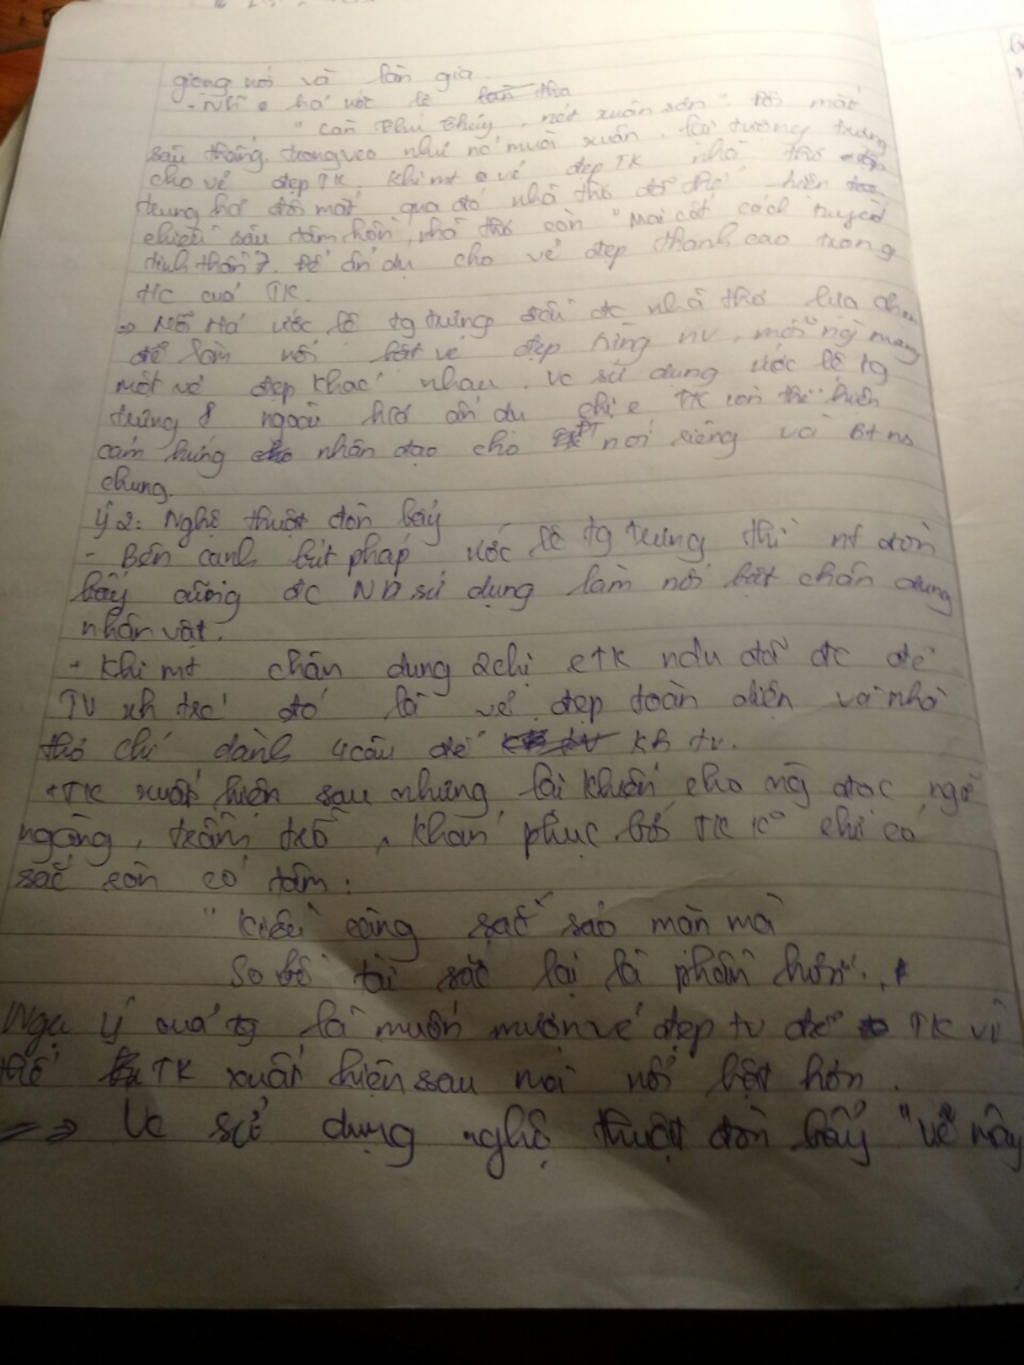 giọng nói và làn gia
"Làn thu thủy, nét xuân sơn" đôi mắt
sâu thẳng, trong veo như nc mùa xuân, tượng trưng
cho vẻ đẹp TK. Khi mt vẻ đẹp TK nhà thơ
trung họa đôi mắt qua đó nhà thơ đã thể hiện
chiều sâu tâm hồn, nhà thơ còn "Mai cốt cách tuyết
tinh thần". Để ẩn dụ cho vẻ đẹp thanh cao trong
của TK.
ước lệ tg trưng đã đc nhà thơ lựa chọn
để làm nổi bật vẻ đẹp từng nv, mỗi ng mang
một vẻ đẹp khác nhau. Vc sử dụng ước lệ tg
trưng ngoài ẩn dụ chị e TK còn thể hiện
cảm hứng nhân đạo cho nói riêng và
chung.
Ý 2: Nghệ thuật đòn bẩy
- Bên cạnh bút pháp ước lệ tg trưng thì nt đòn
bẩy cũng đc ND sử dụng làm nổi bật chân dung
nhân vật.
+ Khi mt chân dung 2 chị e TK ndu đã đc để
TV xh trc đó là vẻ đẹp toàn diện và nhà
thơ chỉ dành 4 câu để tv.
+ TK xuất hiện sau nhưng lại khiến cho ng đọc ngỡ
ngàng, trầm trồ, khan phục bởi TK k0 chỉ có
sắc còn có tâm:
"Kiều càng sắc sảo mặn mà
So bề tài sắc lại là phần hơn".
Ngụ ý của tg là muốn mượn vẻ đẹp tv để TK vì
thế TK xuất hiện sau mà nổi bật hơn.
=> Vc sử dụng nghệ thuật đòn bẩy "vẽ mây